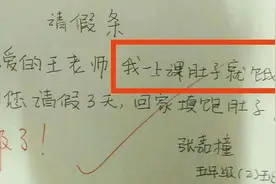 请假条
爱的王老师 我一上课肚子就饿
您请假3天，回家填饱肚子
了！
张嘉橦
五年级(2)班